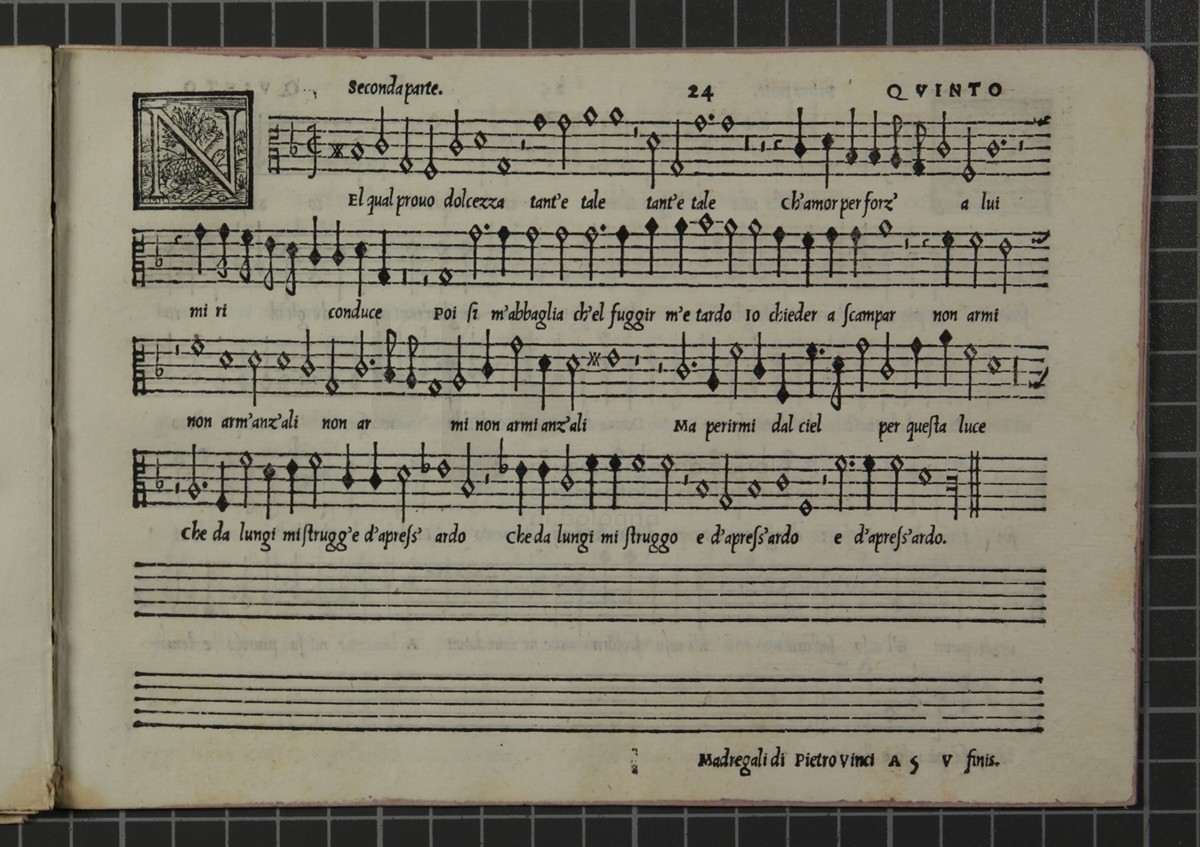 Seconda parte. 24 QVINTO
N El qual prouo dolcezza tant'e tale tant'e tale ch'amor per forz' a lui
mi ri conduce Poi ſi m'abbaglia ch'el fuggir m'e tardo Io chieder a ſcampar non armi
non arm'anz'ali non ar mi non armi anz'ali Ma perirmi dal ciel per queſta luce
Che da lungi mi ſtrugg'e d'apreſs' ardo Che da lungi mi ſtruggo e d'apreſs'ardo e d'apreſs'ardo.
Madregali di Pietro Vinci A 5 V finis.